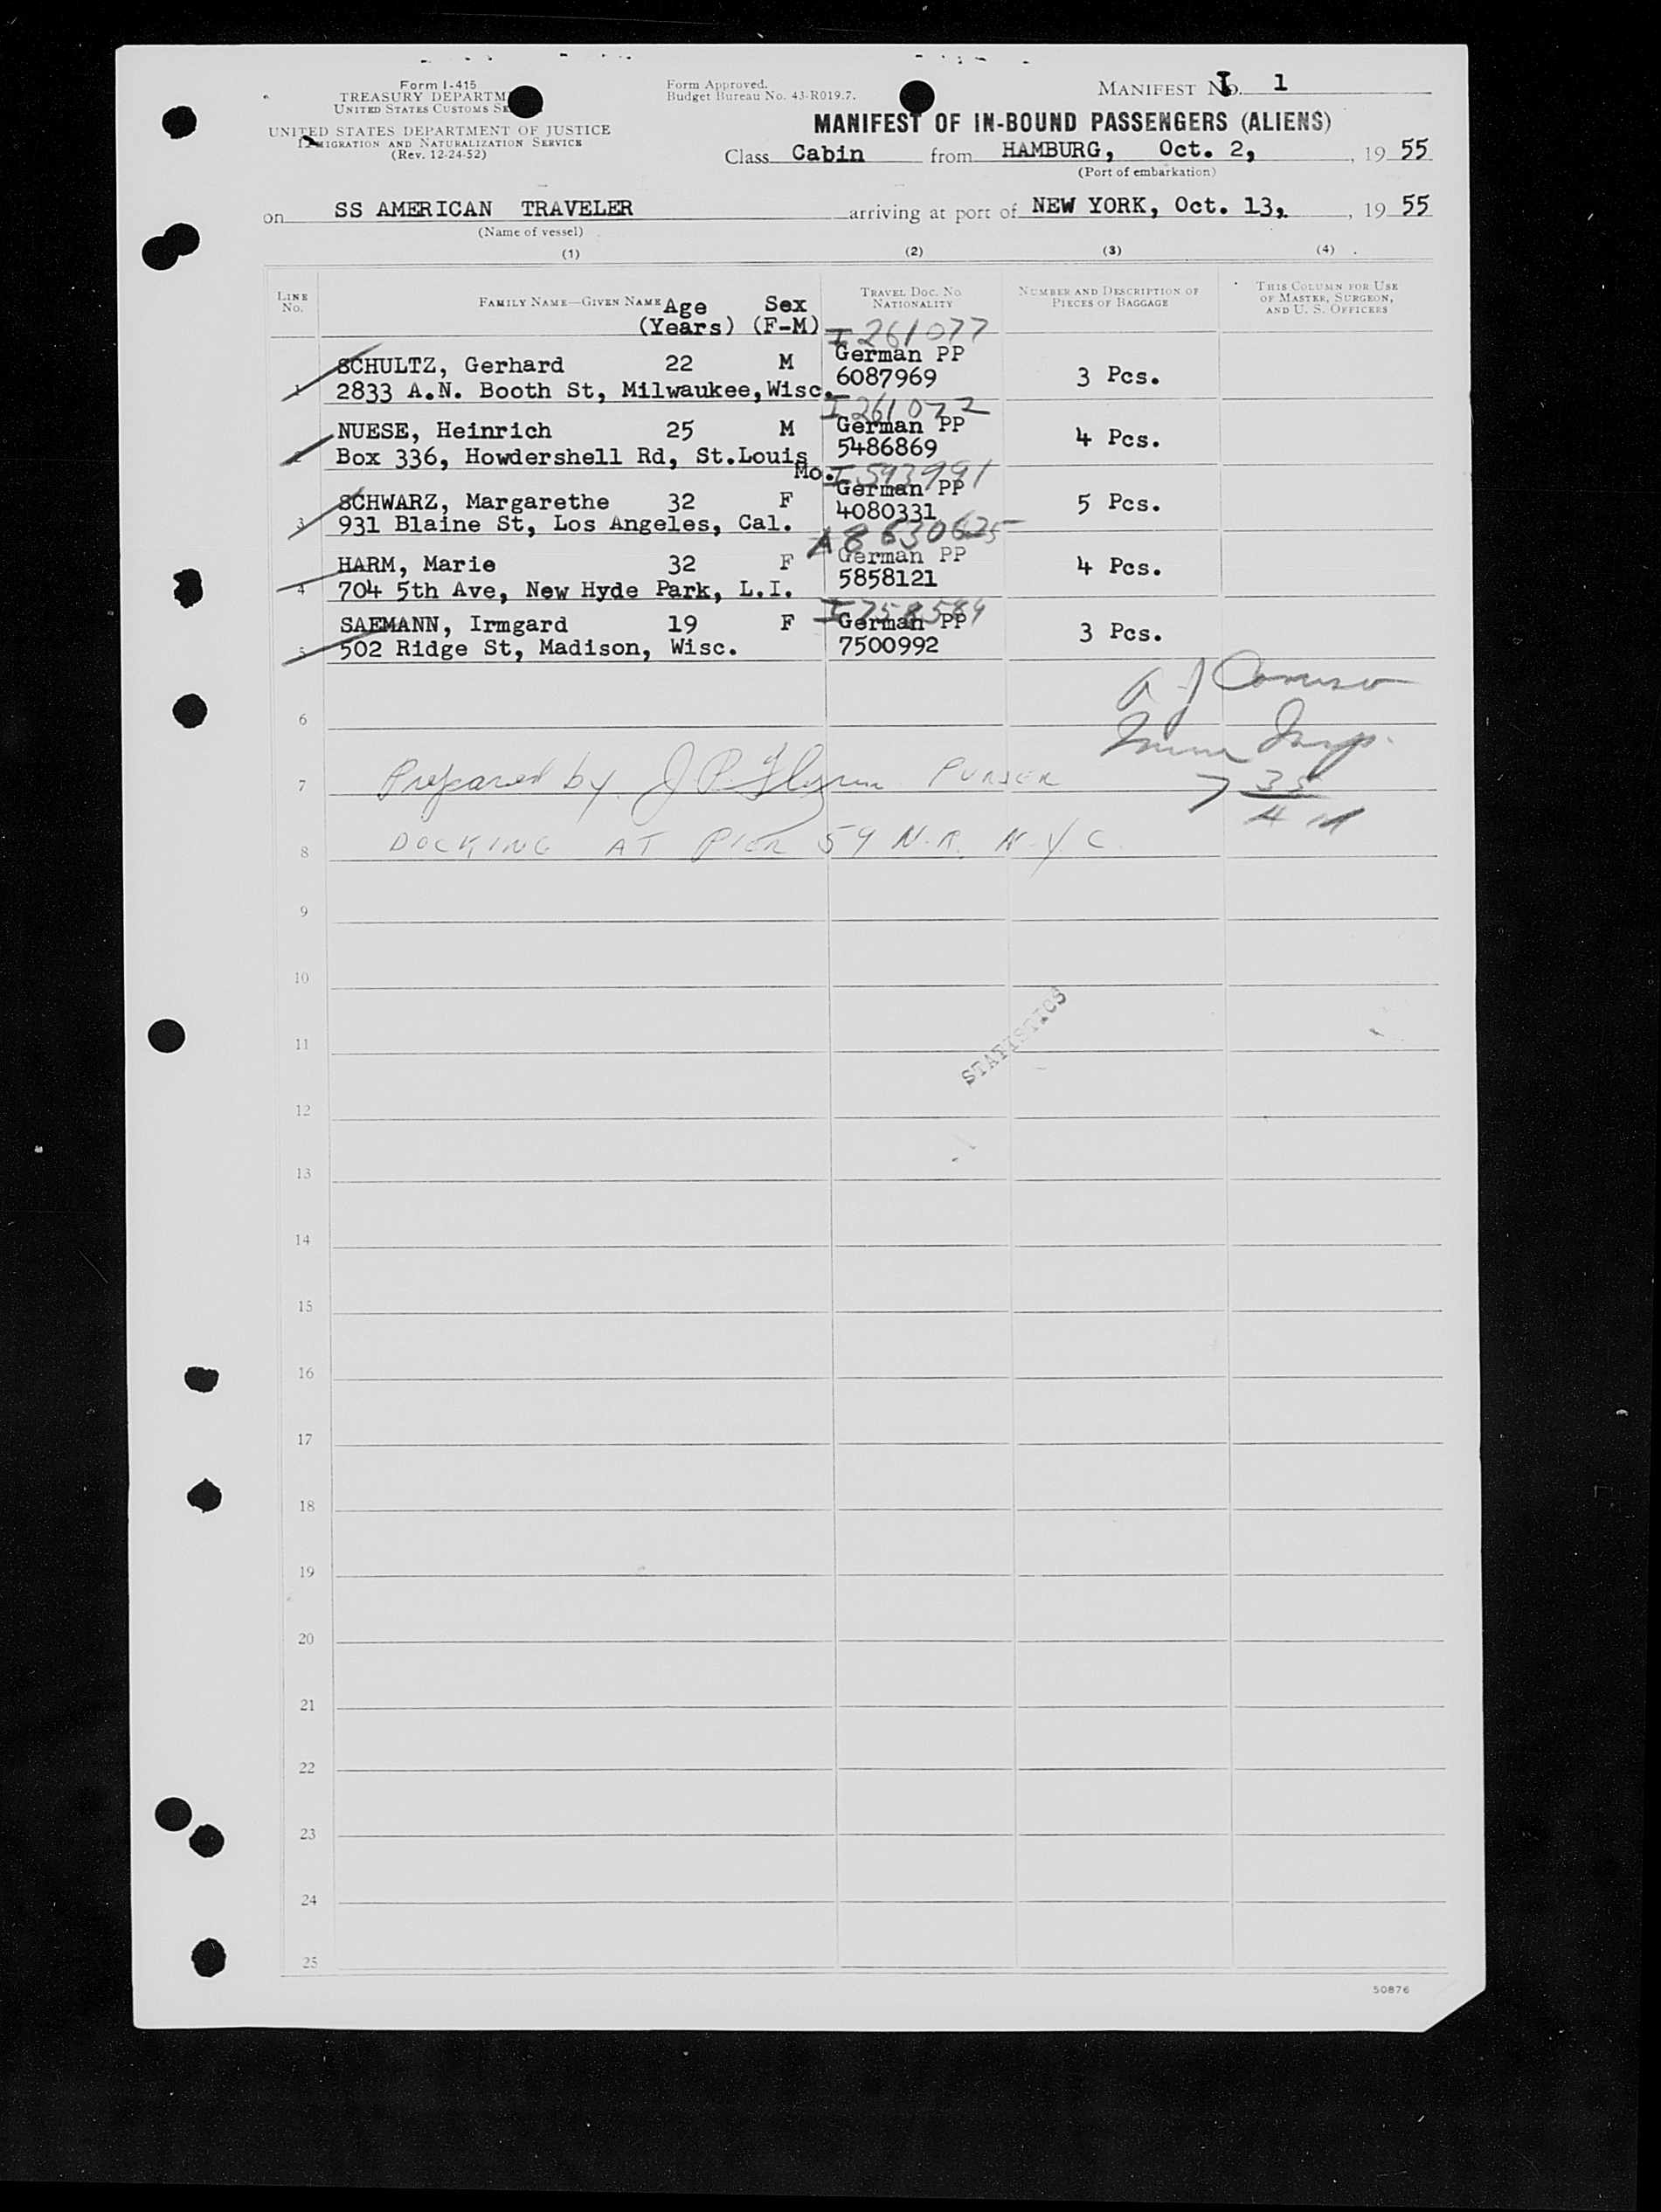 Form I-415
TREASURY DEPARTM
UNITED STATES CUSTOMS SE
UNITED STATES DEPARTMENT OF JUSTICE
IMMIGRATION AND NATURALIZATION SERVICE
(Rev. 12-24-52)
Form Approved.
Budget Bureau No. 43-R019.7.
MANIFEST No. 1
MANIFEST OF IN-BOUND PASSENGERS (ALIENS)
Class Cabin from HAMBURG, Oct. 2, , 19 55
(Port of embarkation)
on SS AMERICAN TRAVELER arriving at port of NEW YORK, Oct. 13, , 19 55
(Name of vessel)
(1) (2) (3) (4)
LINE No.
FAMILY NAME—GIVEN NAME Age (Years) Sex (F-M)
TRAVEL DOC. NO. NATIONALITY
NUMBER AND DESCRIPTION OF PIECES OF BAGGAGE
THIS COLUMN FOR USE OF MASTER, SURGEON, AND U. S. OFFICERS
I 261077
SCHULTZ, Gerhard 22 M German PP
1 2833 A.N. Booth St, Milwaukee, Wisc. 6087969 3 Pcs.
I 261072
NUESE, Heinrich 25 M German PP
2 Box 336, Howdershell Rd, St.Louis Mo. 5486869 4 Pcs.
I 593991
SCHWARZ, Margarethe 32 F German PP
3 931 Blaine St, Los Angeles, Cal. 4080331 5 Pcs.
A8 630625
HARM, Marie 32 F German PP
4 704 5th Ave, New Hyde Park, L.I. 5858121 4 Pcs.
I 758584
SAEMANN, Irmgard 19 F German PP
5 502 Ridge St, Madison, Wisc. 7500992 3 Pcs.
A J Caruso
6
Imm Insp.
7 Prepared by J.P. Flynn PURSER
735
8 DOCKING AT PIER 59 N.R. N.Y.C.
9
10
STATISTICS
11
12
13
14
15
16
17
18
19
20
21
22
23
24
25
50876